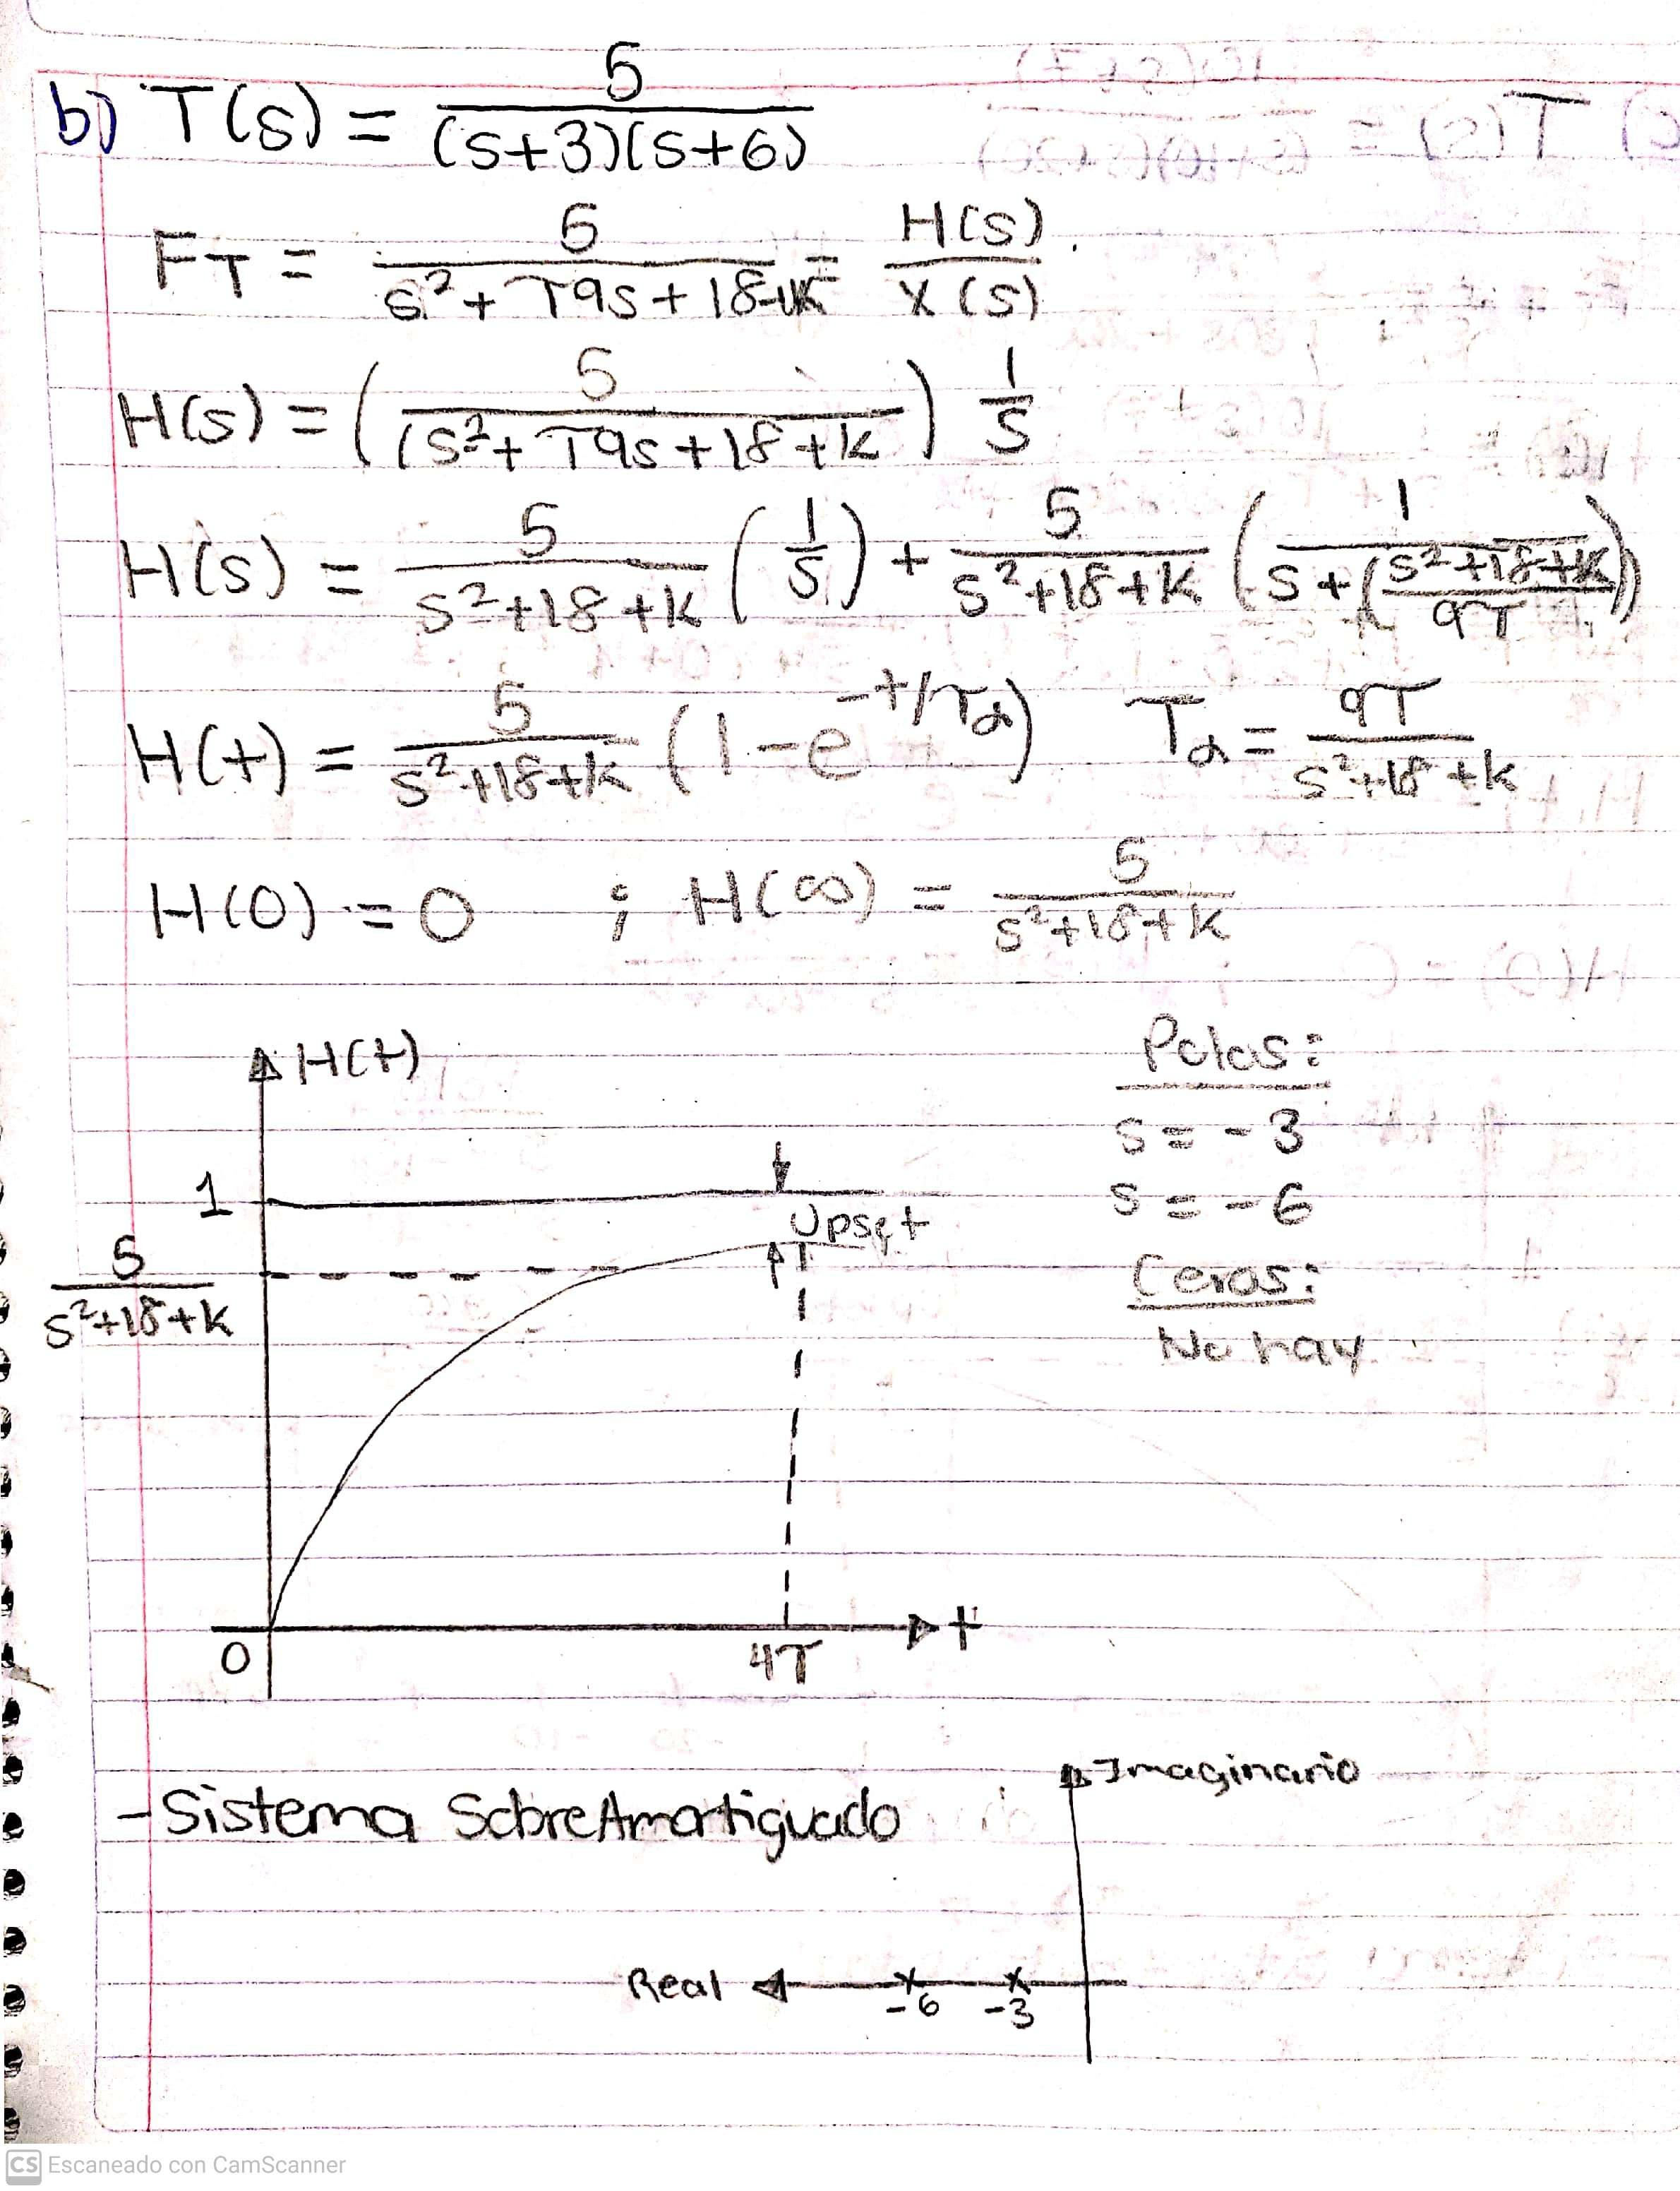 b) T(s) = 5 / (s+3)(s+6)
FT = 5 / s²+T9s+18+K = H(s) / X(s)
H(s) = (5 / (s²+T9s+18+k) 1/s
H(s) = 5 / s²+18+k (1/s) + 5 / s²+18+k (1 / s+(s²+18+k / 9T))
H(t) = 5 / s²+18+k (1-e^-t/Tα) Tα = 9T / s²+18+k
H(0) = 0 ; H(∞) = 5 / s²+18+k
H(t)
1
5 / s²+18+k
Upset
0
4T
t
Polos:
s = -3
s = -6
Ceros:
No hay
- Sistema SobreAmortiguado
Imaginario
Real
-6 -3
CS Escaneado con CamScanner